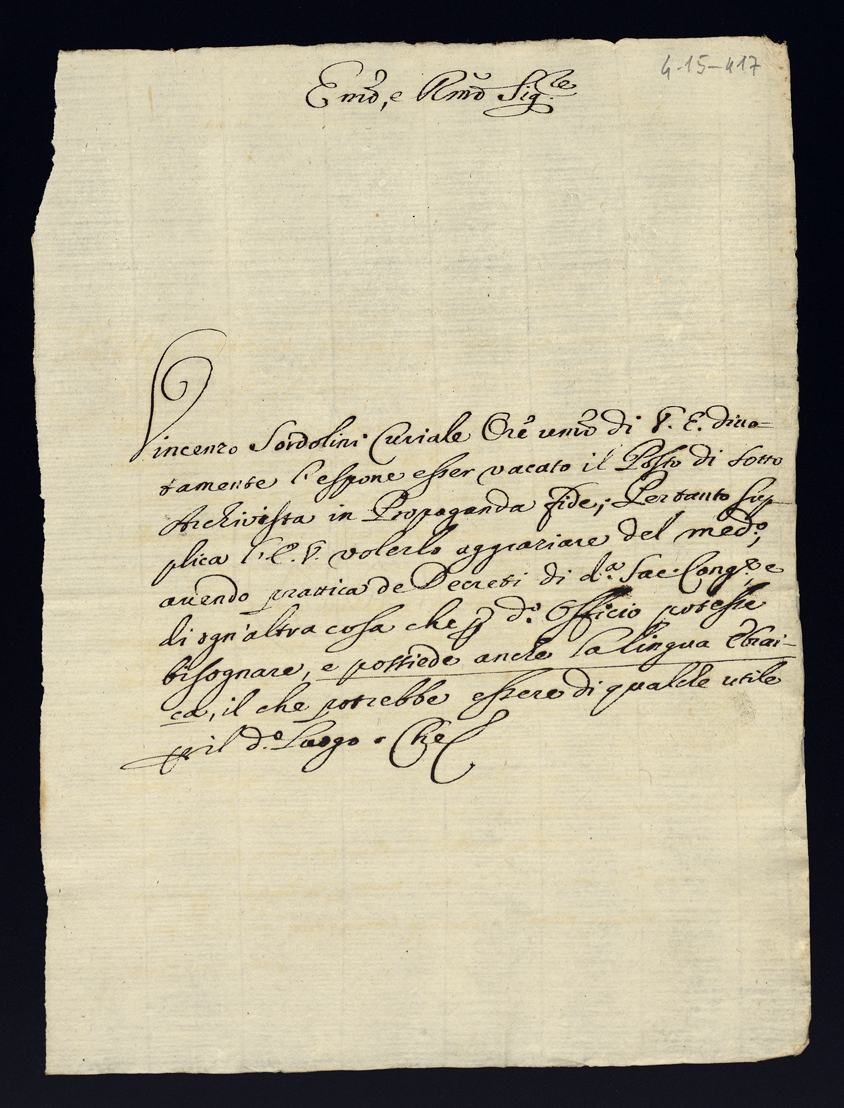 4-15-417
Emõ, e Rmõ Sig.re
Vincenzo Sordolini Curiale Ore umõ di V. E. divo-
tamente l'espone esser vacato il Posto di sotto
Archivista in Propaganda fide; Pertanto sup-
plica l'E. V. volerlo aggraziare del med.o,
avendo prattica de Decreti di d.a Sac: Cong.e, e
di ogn'altra cosa che p d.o Officio potesse
bisognare, e possiede anche la lingua Ebrai-
ca, il che potrebbe essere di qualche utile
p il d.o Luogo. Che